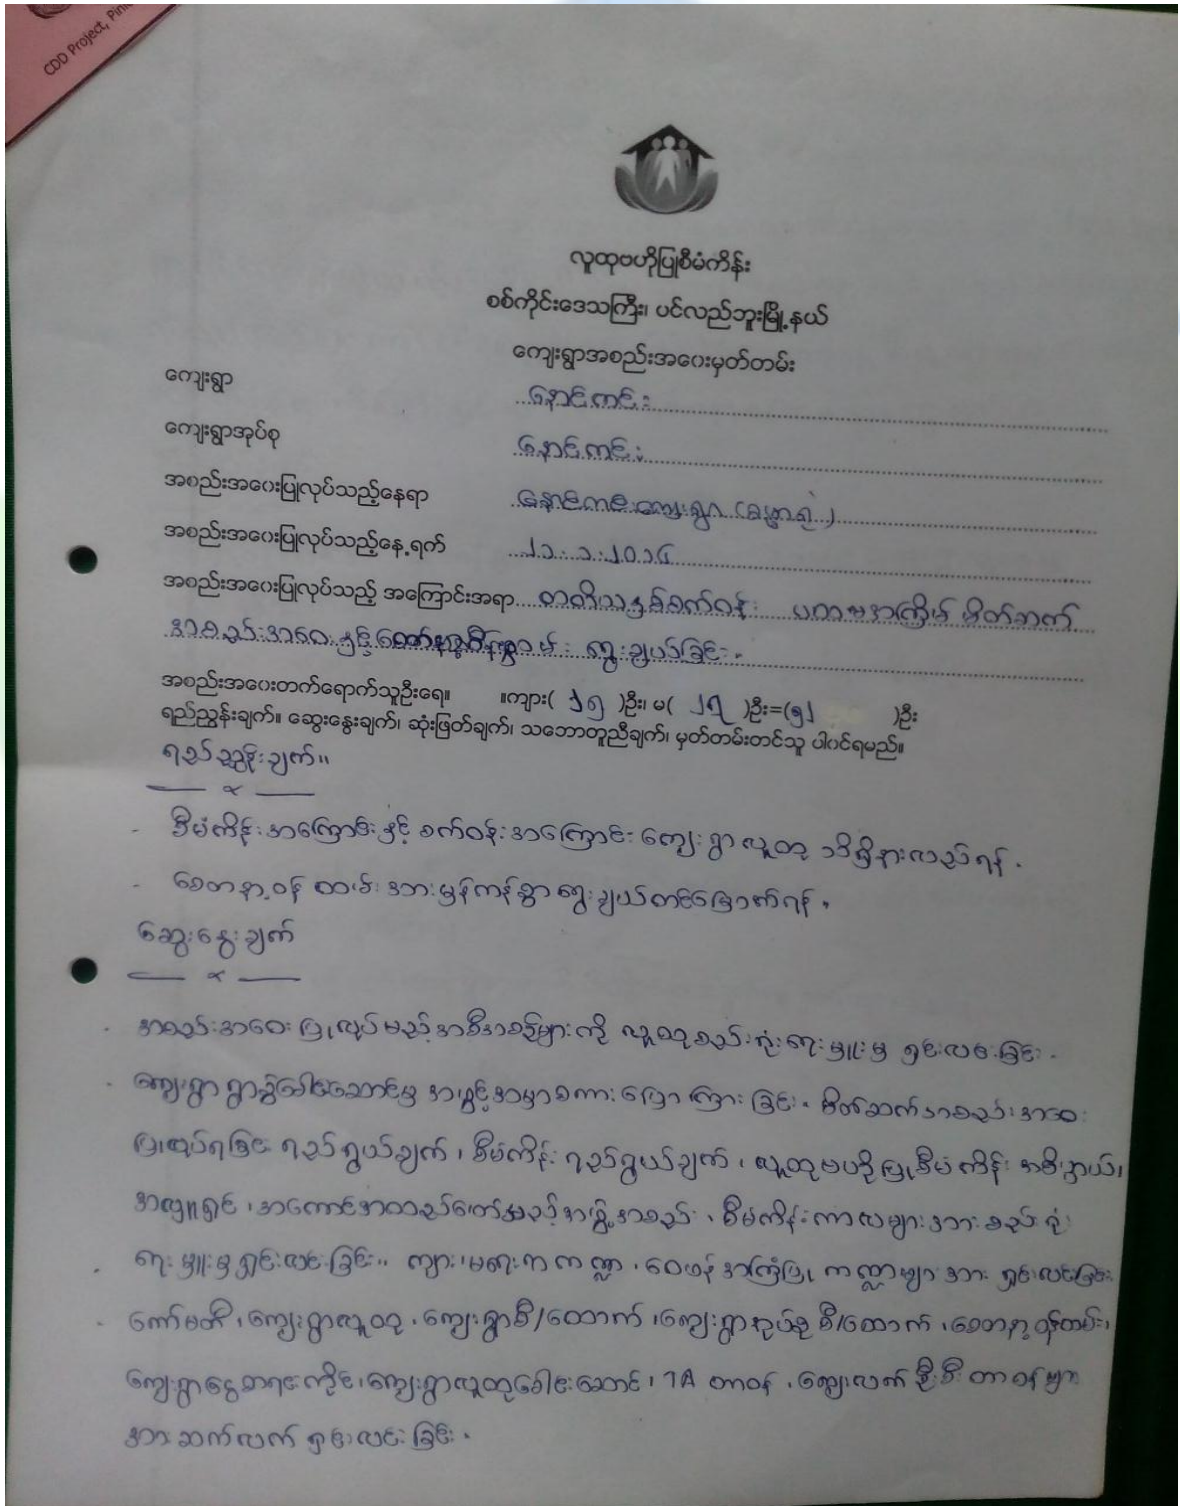 CDD Project, Pinl
လူထုဗဟိုပြုစီမံကိန်း
စစ်ကိုင်းဒေသကြီး၊ ပင်လည်ဘူးမြို့နယ်
ကျေးရွာအစည်းအဝေးမှတ်တမ်း
ကျေးရွာ နောင်ကင်း
ကျေးရွာအုပ်စု နောင်ကင်း
အစည်းအဝေးပြုလုပ်သည့်နေရာ နောင်ကင်းကျေးရွာ (ဓမ္မာရုံ)
အစည်းအဝေးပြုလုပ်သည့်နေ့ရက် ၂၁.၁.၂၀၁၆
အစည်းအဝေးပြုလုပ်သည့် အကြောင်းအရာ တတိယနှစ်စက်ဝန်း ပထမအကြိမ် မိတ်ဆက်
အစည်းအဝေးနှင့် ရွေးချယ်ခြင်း.
အစည်းအဝေးတက်ရောက်သူဦးရေ။ ။ကျား( ၁၅ )ဦး၊ မ( ၂၇ )ဦး=( )ဦး
ရည်ညွှန်းချက်။ ဆွေးနွေးချက်၊ ဆုံးဖြတ်ချက်၊ သဘောတူညီချက်၊ မှတ်တမ်းတင်သူ ပါဝင်ရမည်။
ရည်ညွှန်းချက်။
- စီမံကိန်းအကြောင်းနှင့် စက်ဝန်းအကြောင်း ကျေးရွာလူထု သိရှိနားလည်ရန်.
- စေတနာ့ဝန်ထမ်းအားမှန်ကန်စွာရွေးချယ်တင်မြှောက်ရန်.
ဆွေးနွေးချက်
- အစည်းအဝေးပြုလုပ်မည့်အစီအစဉ်များကို လူထုစည်းရုံးရေးမှူးမှ ရှင်းလင်းခြင်း.
- ကျေးရွာ ရွာခွဲခေါင်းဆောင်မှ အဖွင့်အမှာစကားပြောကြားခြင်း. မိတ်ဆက်အစည်းအဝေး
ပြုလုပ်ရခြင်း ရည်ရွယ်ချက်၊ စီမံကိန်း ရည်ရွယ်ချက်၊ လူထုဗဟိုပြုစီမံကိန်း အဓိပ္ပာယ်၊
အလှူရှင်၊ အကောင်အထည်ဖော်မည့်အဖွဲ့အစည်း၊ စီမံကိန်းကာလများအား စည်းရုံး
- ရေးမှူးမှရှင်းလင်းခြင်း။ ကျား၊မရေးရာကဏ္ဍ၊ ဝေဖန်အကြံပြုကဏ္ဍများအား ရှင်းလင်းခြင်း
- ကော်မတီ၊ ကျေးရွာလူထု၊ ကျေးရွာစီ/ထောက်၊ ကျေးရွာအုပ်စု စီ/ထောက်၊ စေတနာ့ဝန်ထမ်း၊
ကျေးရွာငွေစာရင်းကိုင်၊ ကျေးရွာလူထုခေါင်းဆောင်၊ TA တာဝန်၊ ကျေးလက်ဦးစီးတာဝန်များ
အားဆက်လက် ရှင်းလင်းခြင်း.